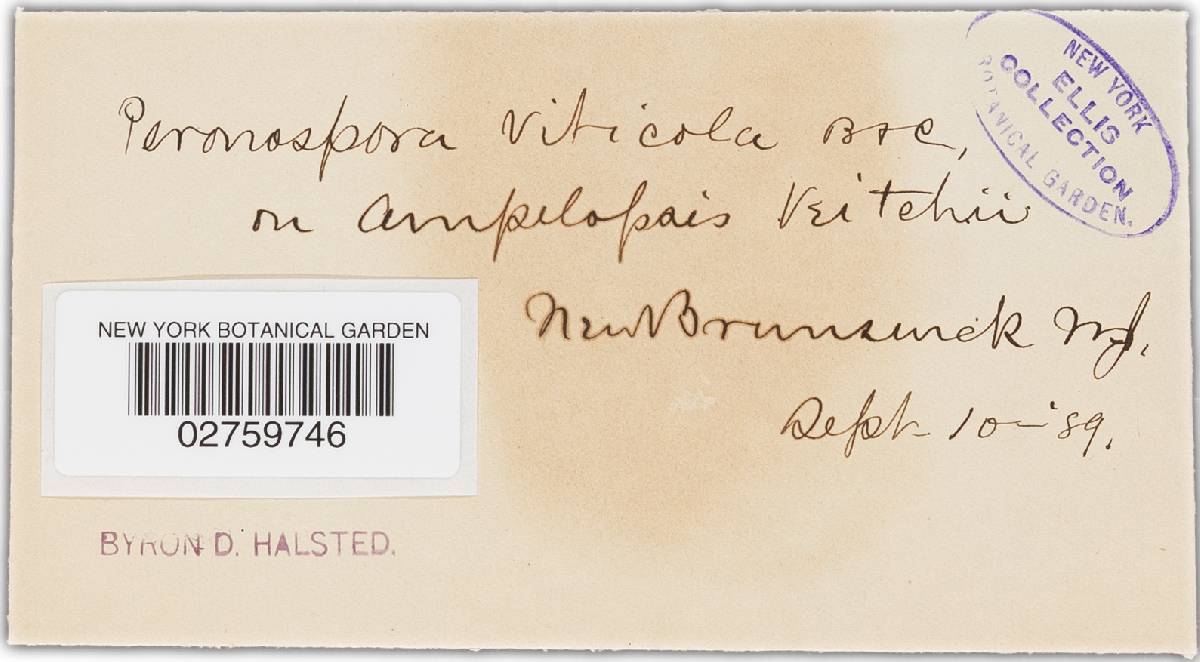 Peronospora Viticola B & C,
on Ampelopsis Veitchii
New Brunswick N.J.
Sept 10 - '89.
NEW YORK
BOTANICAL GARDEN.
ELLIS
COLLECTION
NEW YORK BOTANICAL GARDEN
02759746
BYRON D. HALSTED.